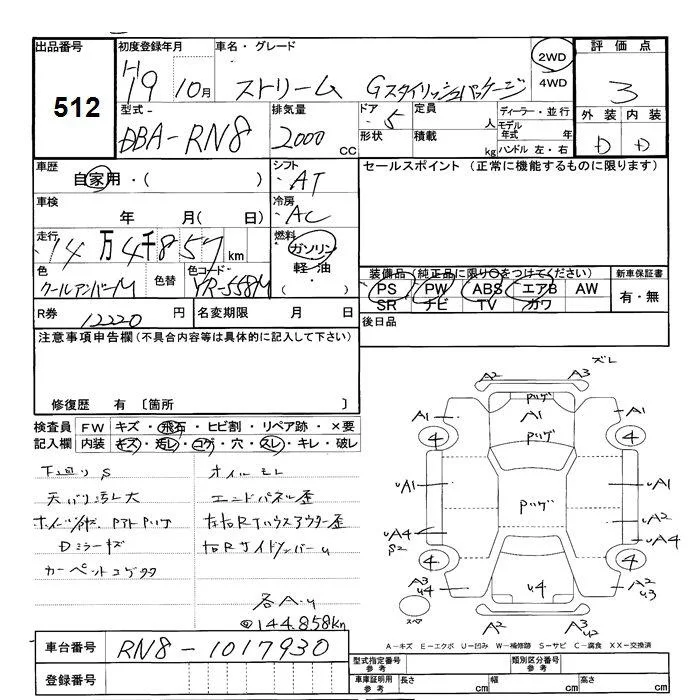 出品番号 初度登録年月 車名・グレード 評価点
512
H19 10月 ストリーム Gスタイリッシュパッケージ 2WD 4WD 3
型式 排気量 ドア 形状 定員 人 積載 kg ディーラー・並行 モデル年式 年 ハンドル 左・右 外装 内装
DBA-RN8 2000 CC 5 D D
車歴 自家用・( ) シフト AT セールスポイント (正常に機能するものに限ります)
車検 年 月( 日) 冷房 AC
走行 14万4千857km 燃料 ガソリン 軽油 ( )
色 クールアンバーM 色替 色コード YR-558M
装備品 (純正品に限り○をつけてください) 新車保証書
PS PW ABS エアB AW 有・無
SR ナビ TV カワ
R券 12220円 名変期限 月 日 後日品
注意事項申告欄(不具合内容等は具体的に記入して下さい)
修復歴 有 〔箇所 〕
検査員 FW キズ・飛石・ヒビ割・リペア跡・×要
記入欄 内装 キズ・汚レ・コゲ・穴・スレ・キレ・破レ
下廻りS オイルモレ
天バリ汚レ大 エンドパネル歪
左右Rタイハウスアウター歪
Dミラーキズ 右RサイドメンバーU
カーペットコゲ
各A・U
@144.858kn
ズレ
A2 A3
Pツゲ
A1 A1 A1
4 Pツゲ 4
UA1 Pツゲ UA1
UA2
UA4 UA4
S2
4 4
A3 U4 U4 A2 U3
スペア A2 A3 U2
A-キズ E-エクボ U-凹み W-補修跡 S-サビ C-腐食 XX-交換済
車台番号 RN8-1017930
登録番号
型式指定番号 参考 類別区分番号 参考
車庫証明用 参考 長さ cm 幅 cm 高さ cm